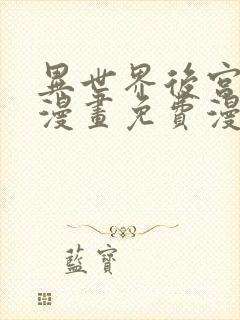 異世界後宮
漫畫免費漫
藍寶